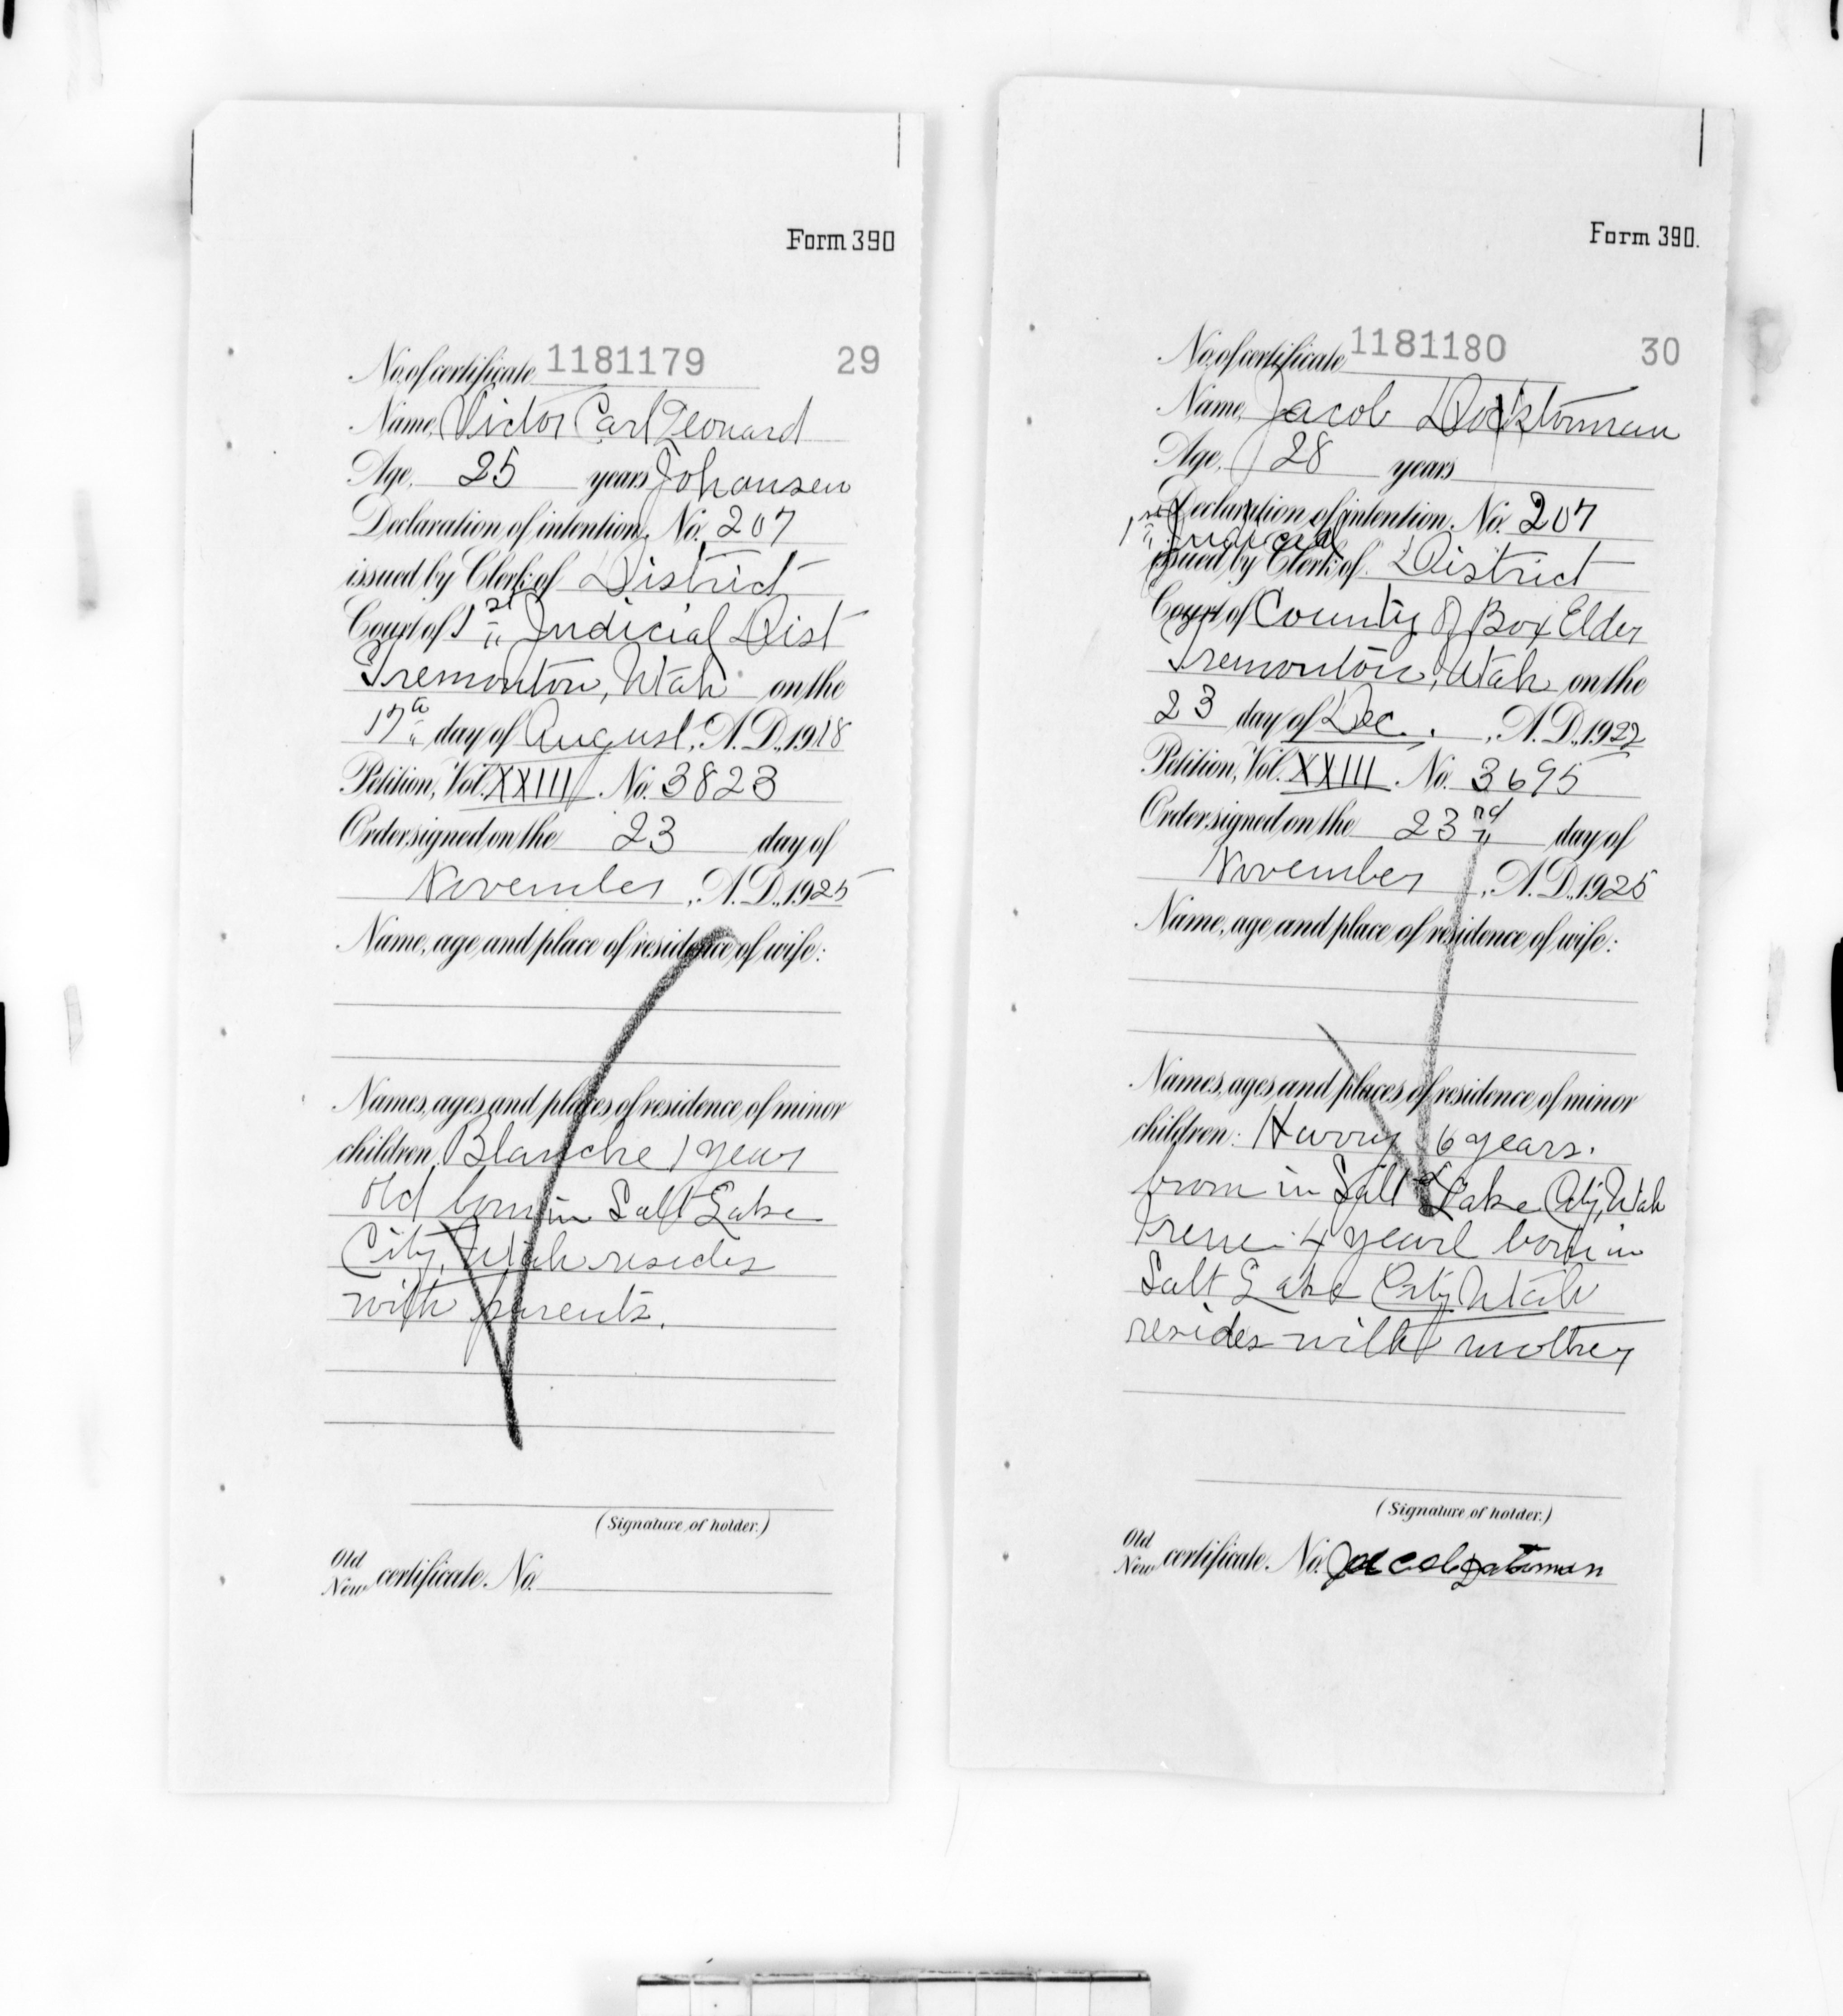 Form 390
No. of certificate 1181179 29
Name, Victor Carl Leonard
Age, 25 years Johansen
Declaration of intention, No. 207
issued by Clerk of District
Court of 1st Judicial Dist
Tremonton, Utah on the
17th day of August, A. D., 1918
Petition, Vol. XXIII No. 3823
Order signed on the 23 day of
November, A. D., 1925
Name, age and place of residence of wife:
Names, ages and places of residence of minor
children Blanche 1 year
old born in Salt Lake
City, Utah resides
with parents.
(Signature of holder.)
Old
New certificate No.
Form 390.
No. of certificate 1181180 30
Name, Jacob
Age, 28 years
Declaration of intention, No. 207
1st Judicial
issued by Clerk of District
Court of County of Box Elder
Tremonton, Utah on the
23 day of Dec., A. D., 1922
Petition, Vol. XXIII No. 3695
Order signed on the 23rd day of
November, A. D., 1925
Name, age and place of residence of wife:
Names, ages and places of residence of minor
children: Harry 6 years.
born in Salt Lake City, Utah
Irene 4 years born in
Salt Lake City Utah
resides with mother
(Signature of holder.)
Old
New certificate No. Jacob